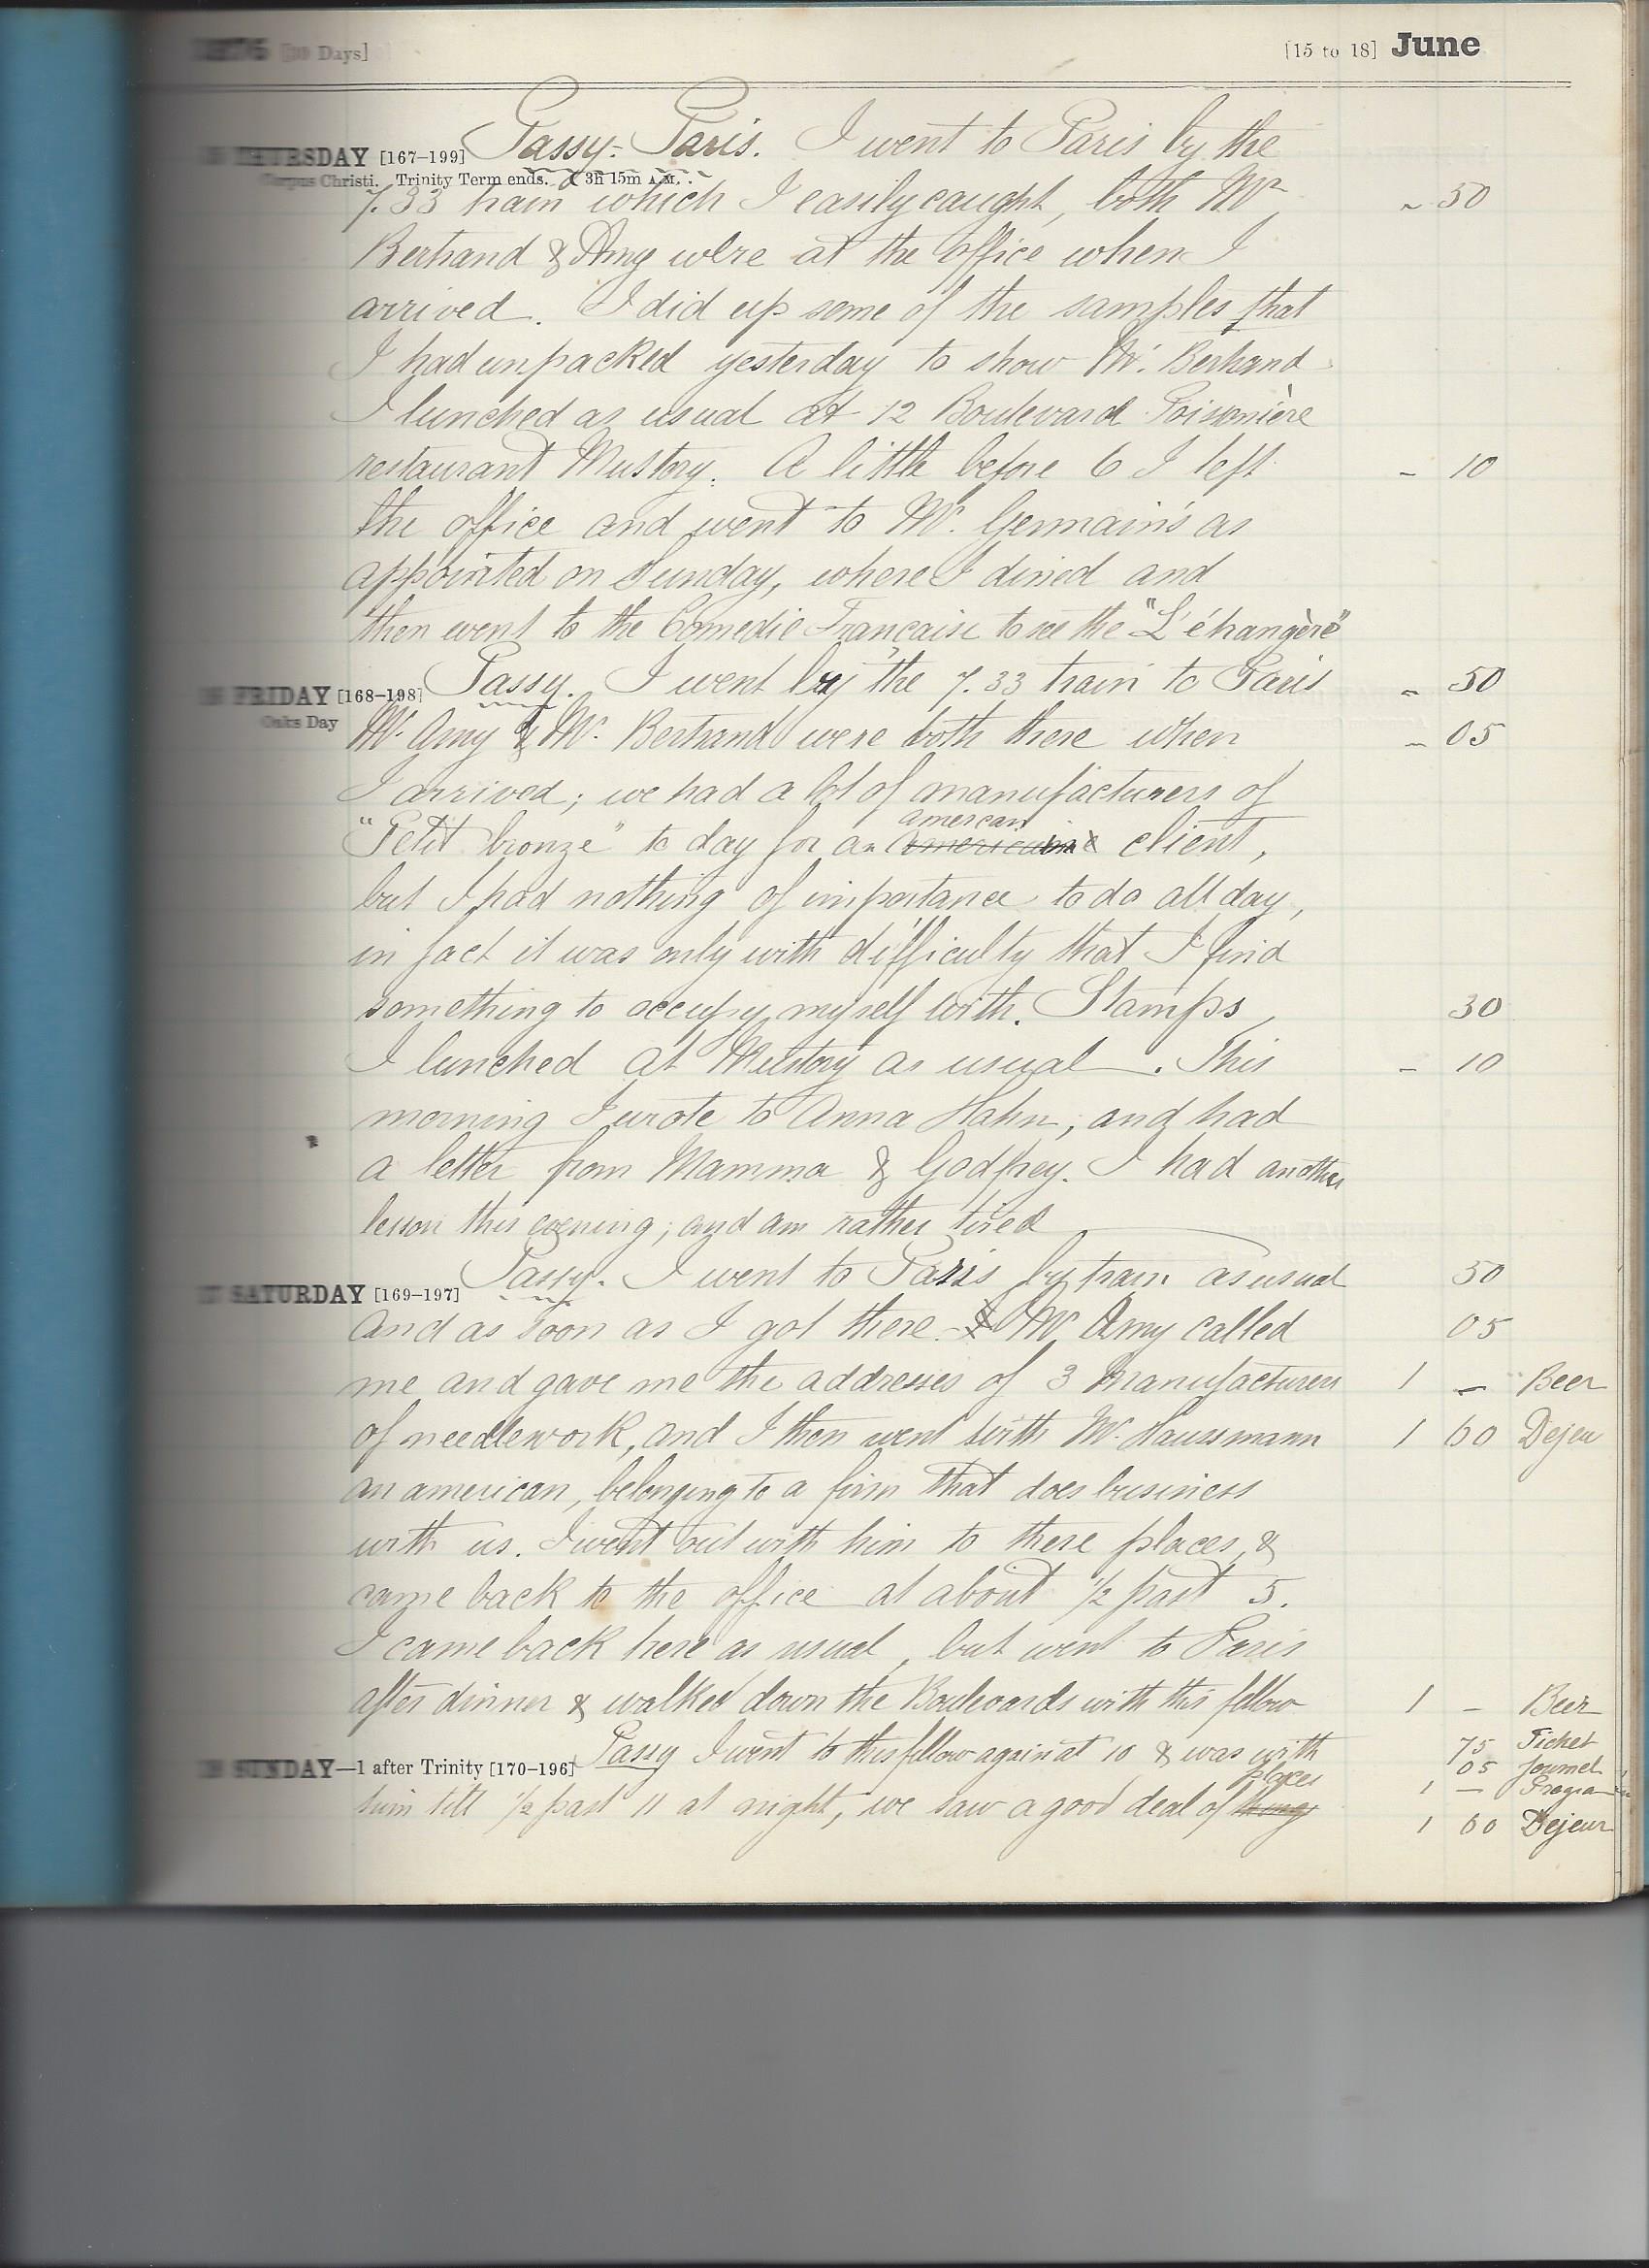 1876 [30 Days] [15 to 18] June
THURSDAY [167–199] Passy – Paris. I went to Paris by the
Corpus Christi. Trinity Term ends. 3h 15m A.M.
7.33 train which I easily caught, both Mr – 50
Bertrand & Amy were at the office when I
arrived. I did up some of the samples that
I had unpacked yesterday to show Mr. Bertrand
I lunched as usual at 12 Boulevard Poisonière
restaurant Mustory. A little before 6 I left – 10
the office and went to Mr. Germain's as
appointed on Sunday, where I dined and
then went to the Comedie Française to see the "L'échangère"
FRIDAY [168–198] Passy. I went by the 7.33 train to Paris – 50
Oaks Day
Mr. Amy & Mr. Bertrand were both there when – 05
I arrived; we had a lot of manufacturers of
american
"Petit bronze" to day for an client,
but I had nothing of importance to do all day,
in fact it was only with difficulty that I find
something to occupy myself with. Stamps 30
I lunched at Mustory as usual. This – 10
morning I wrote to Anna Hahn, and had
a letter from Mamma & Godfrey. I had another
lesson this evening, and am rather tired
SATURDAY [169–197] Passy. I went to Paris by train as usual 50
and as soon as I got there Mr. Amy called 05
me and gave me the addresses of 3 manufacturers 1 – Beer
of needlework, and I then went with Mr. Haussmann 1 60 Dejeu
an american, belonging to a firm that does business
with us. I went out with him to these places, &
came back to the office at about ½ past 5.
I came back here as usual, but went to Paris
after dinner & walked down the Boulevards with this fellow 1 – Beer
SUNDAY—1 after Trinity [170–196] Passy I went to this fellow again at 10 & was with 75 Ticket
05 Journal
places 1 – Program
him till ½ past 11 at night, we saw a good deal of things 1 60 Dejeur